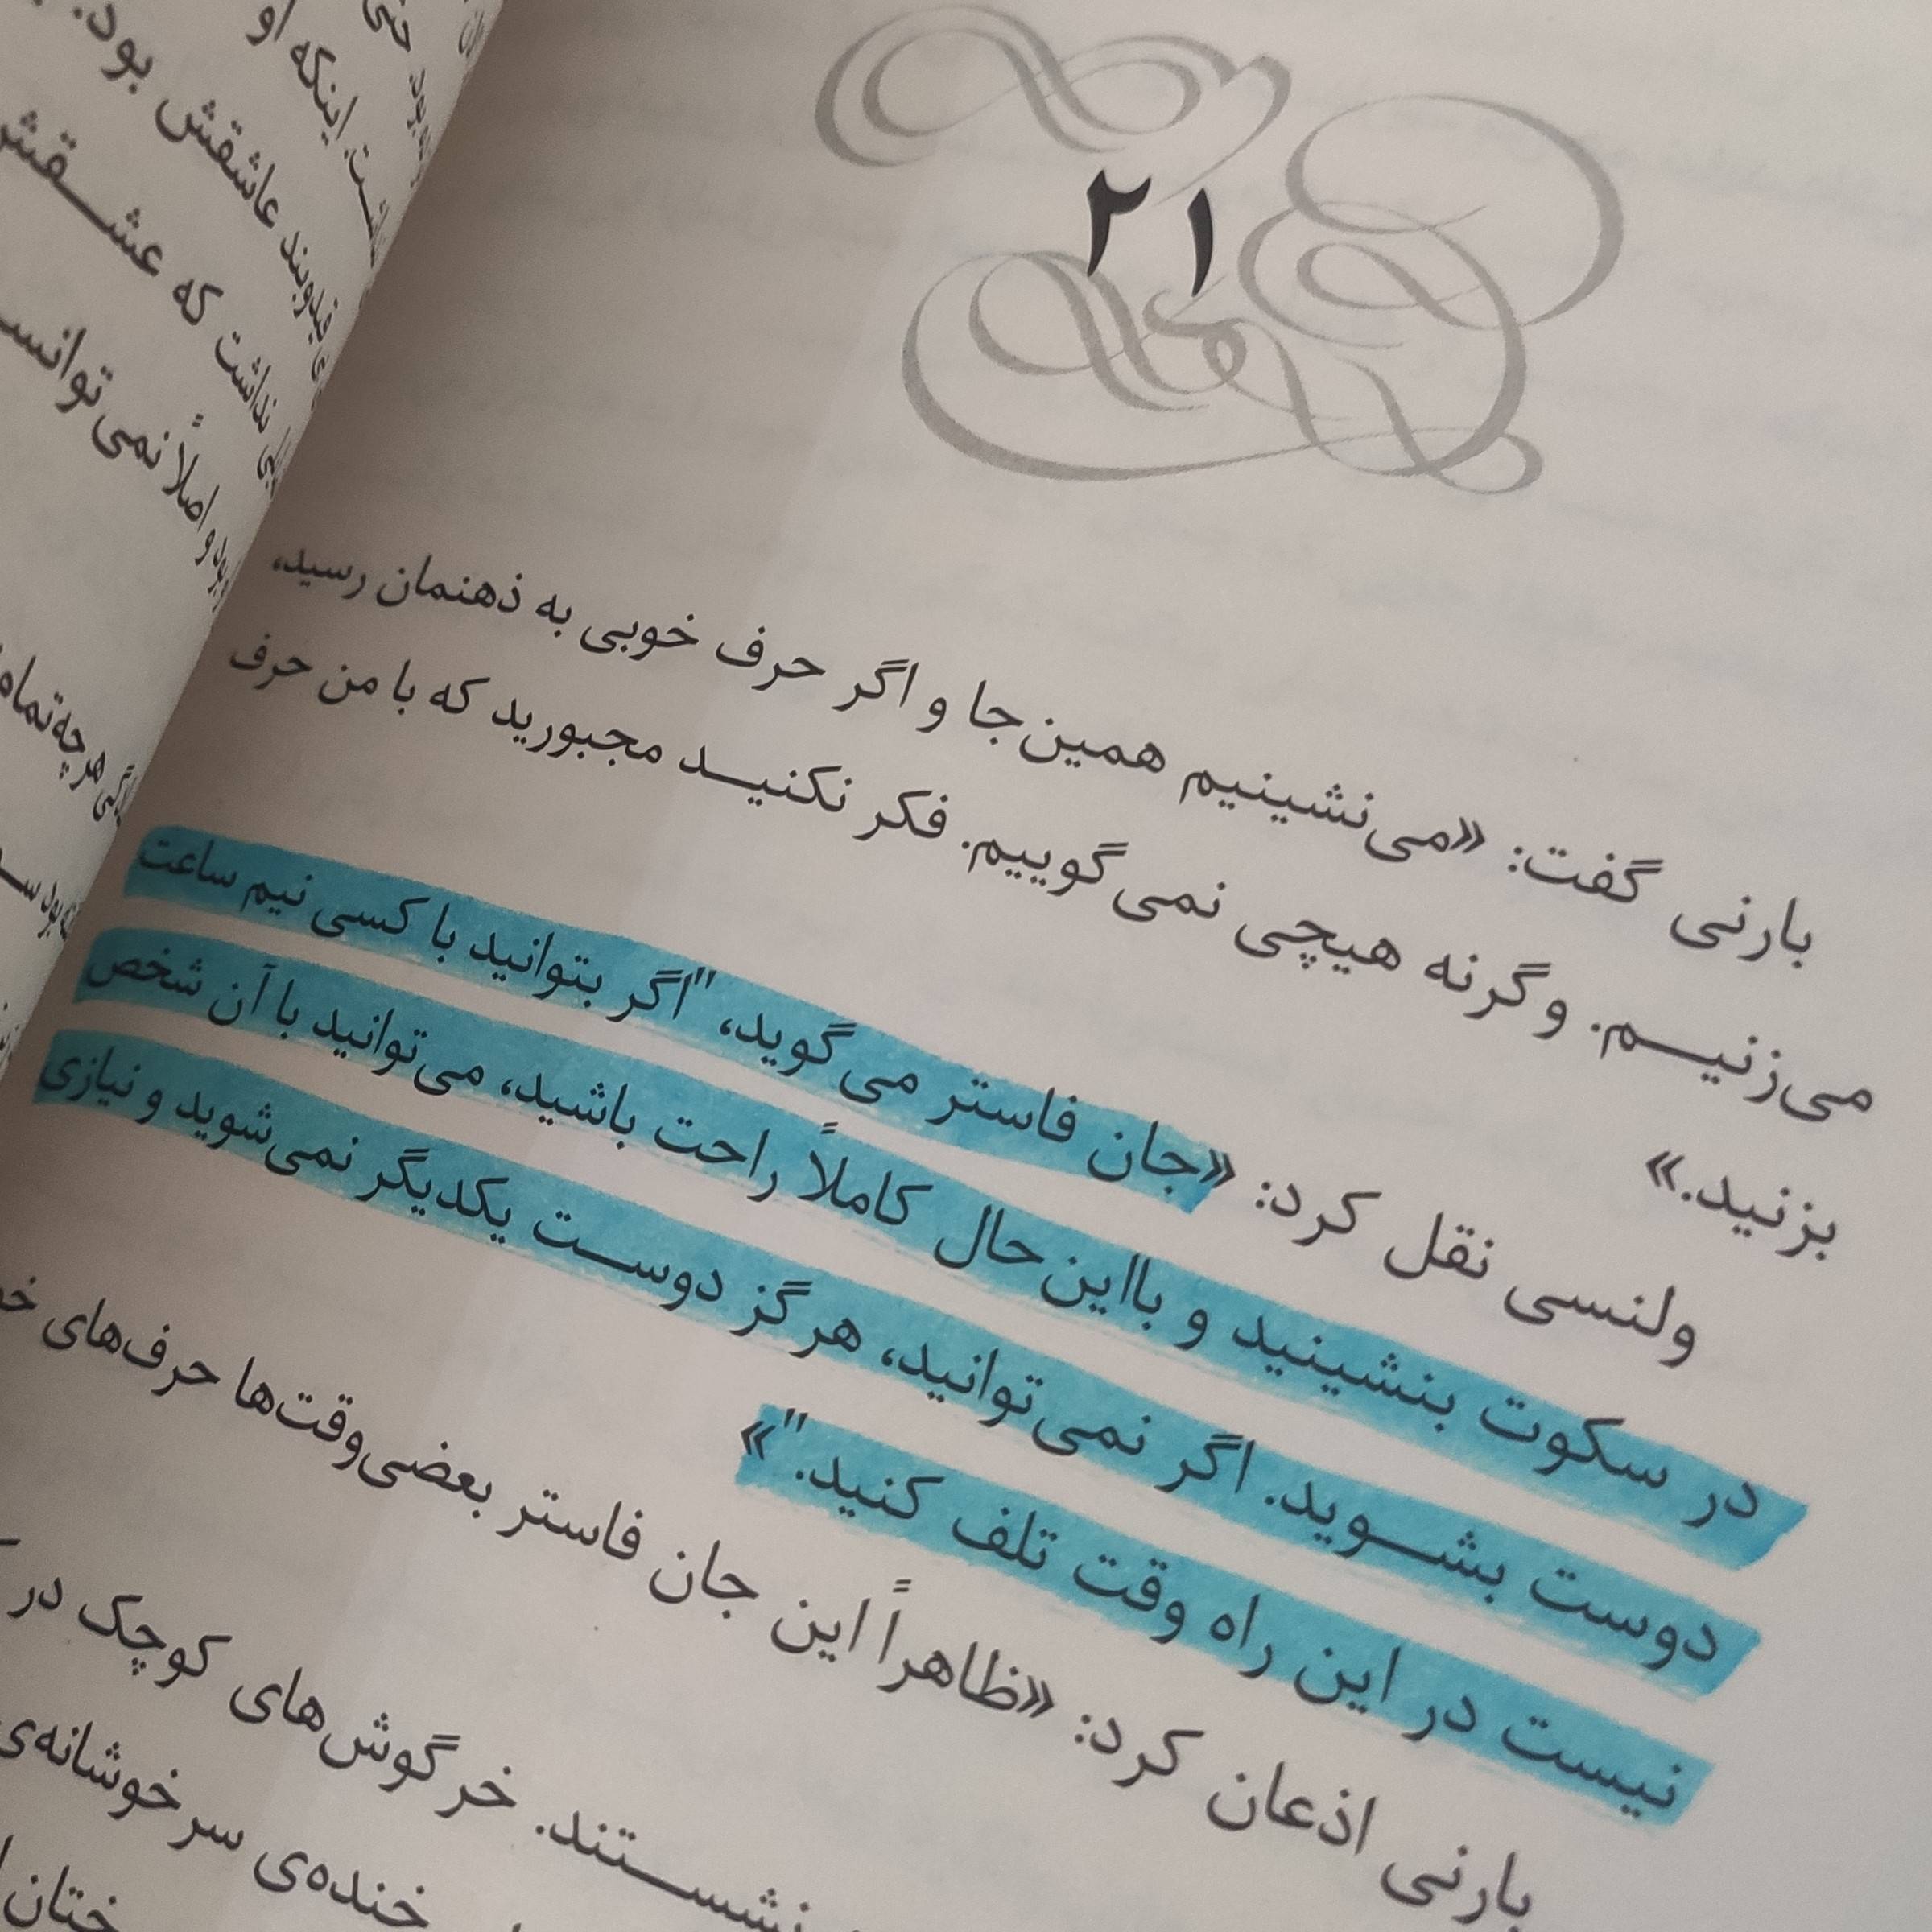 ۲۱
بارنی گفت: «می‌نشینیم همین‌جا و اگر حرف خوبی به ذهنمان رسید،
می‌زنیم. وگرنه هیچی نمی‌گوییم. فکر نکنید مجبورید که با من حرف
بزنید.»
ولنسی نقل کرد: «جان فاستر می‌گوید، "اگر بتوانید با کسی نیم ساعت
در سکوت بنشینید و بااین‌حال کاملاً راحت باشید، می‌توانید با آن شخص
دوست بشوید. اگر نمی‌توانید، هرگز دوست یکدیگر نمی‌شوید و نیازی
نیست در این راه وقت تلف کنید."»
بارنی اذعان کرد: «ظاهراً این جان فاستر بعضی‌وقت‌ها حرف‌های
نشستند. خرگوش‌های کوچک در
خنده‌ی سرخوشانه‌ی
اینکه او
عاشقش بود.
نداشت که عشقش
بود و اصلاً نمی‌توانست
هرچه‌تمام